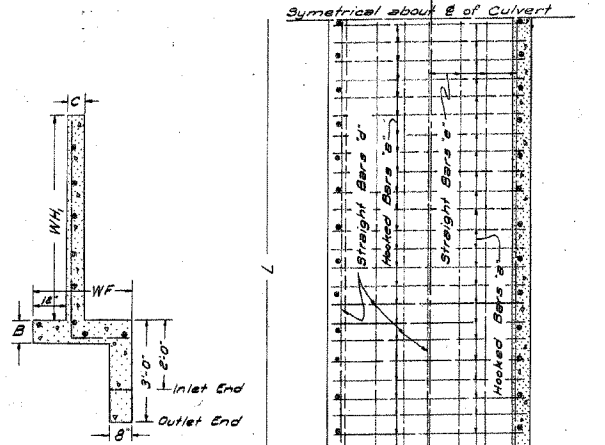 Symetrical about ℄ of Culvert
C
WH,
WF
B
3'-0"
2'-0"
Inlet End
Outlet End
8"
Straight Bars "d"
Hooked Bars "a"
Straight Bars "e"
Hooked Bars "a"